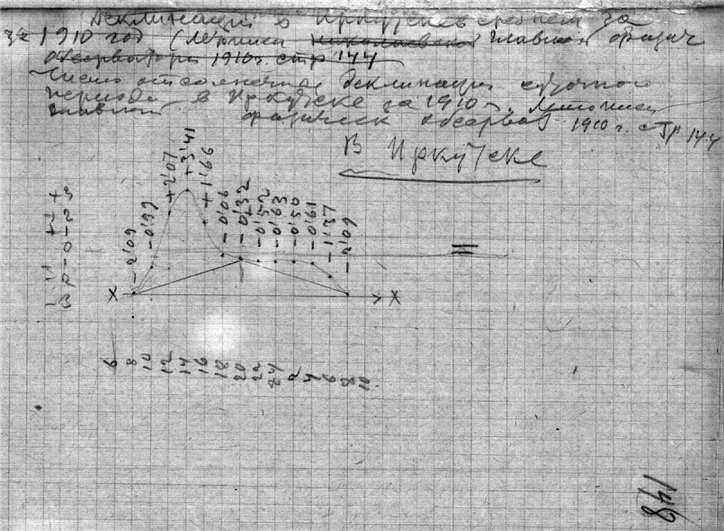 Деклинации в Иркутске в среднем за
за 1910 год (Летописи николаевской главной физич
обсерватории 1910 г. стр 144
Число отсолнечные деклинации суточного
периода в Иркутске за 1910 г. Летописи
главной физическ обсерват 1910 г. стр 144
В Иркутске
-2'09
-0'99
+2'07
+3'41
+1'66
-0'06
+0'32
-0'52
-0'63
-0'50
-0'61
-1'37
-2'09
-3 -2 -1 0 +1 +2 +3
X
X
=
6
8
10
12
14
16
18
20
22
24
2
4
6
8
10
148